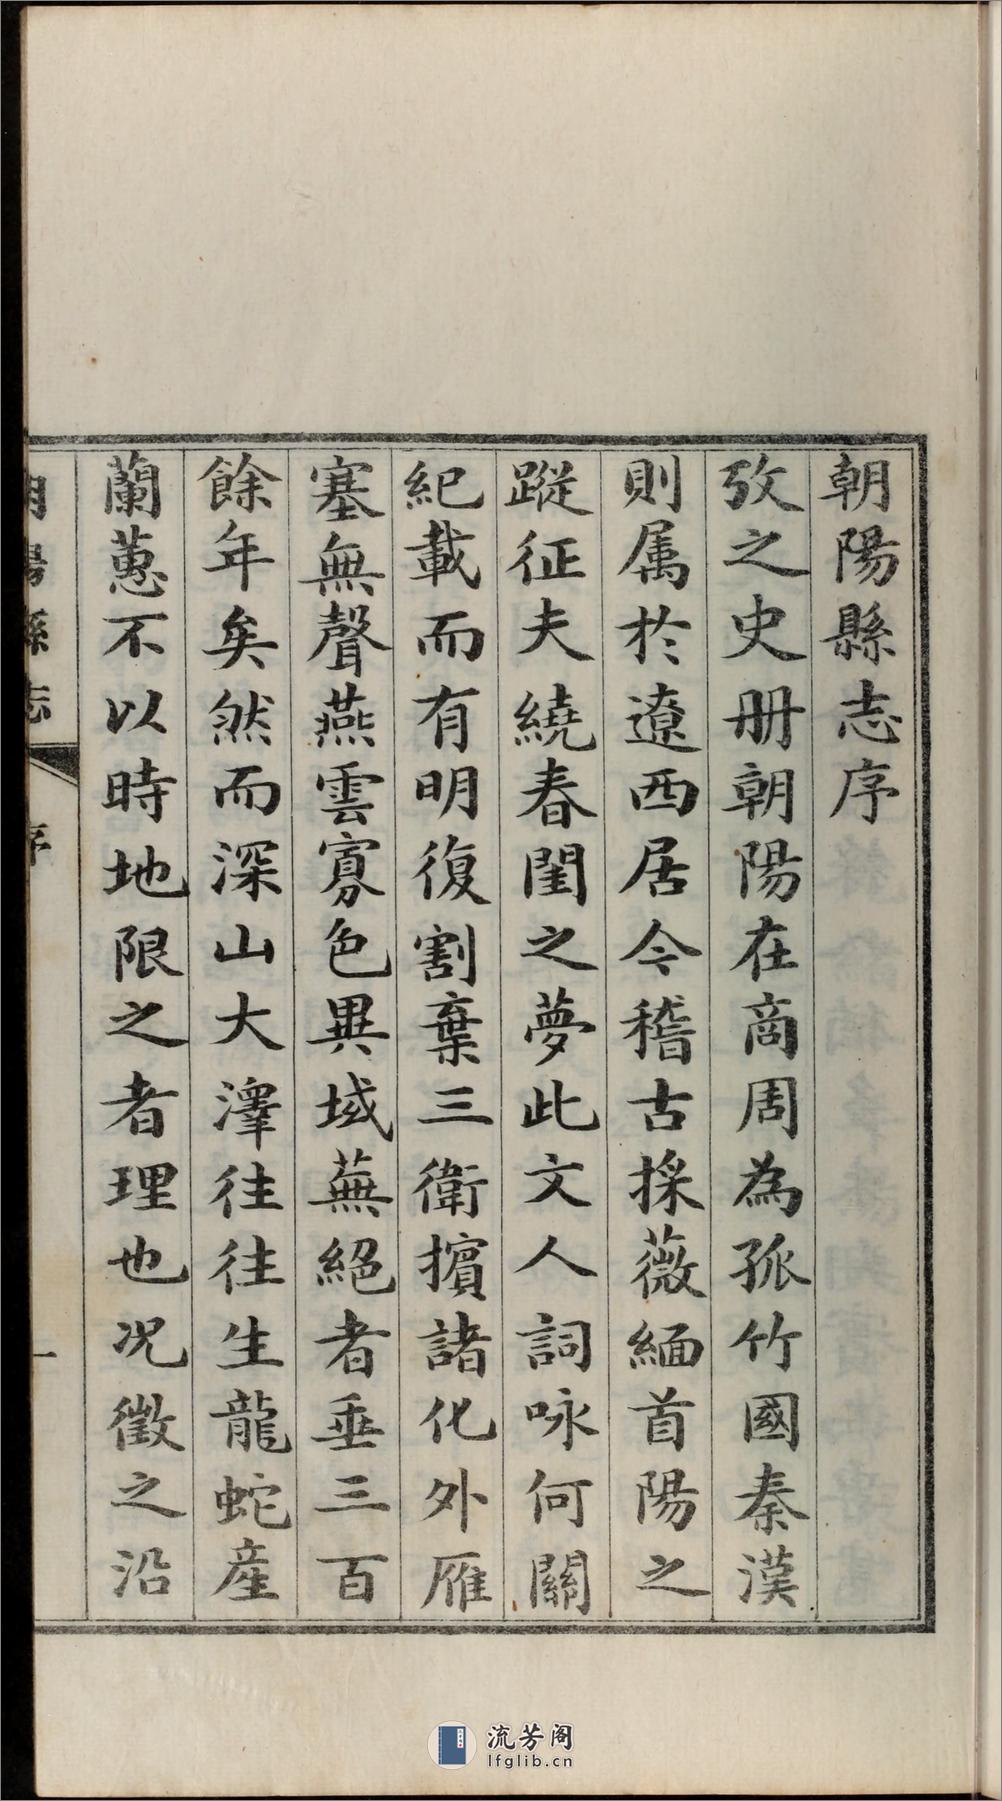 朝陽縣志序
攷之史册朝陽在商周為孤竹國秦漢
則属於遼西居今稽古採薇緬首陽之
蹤征夫繞春閨之夢此文人詞咏何關
紀載而有明復割棄三衛擯諸化外雁
塞無聲燕雲寡色異域蕪絕者垂三百
餘年矣然而深山大澤往往生龍蛇產
蘭蕙不以時地限之者理也况徵之沿
朝陽縣志 序 一
流芳阁
lfglib.cn